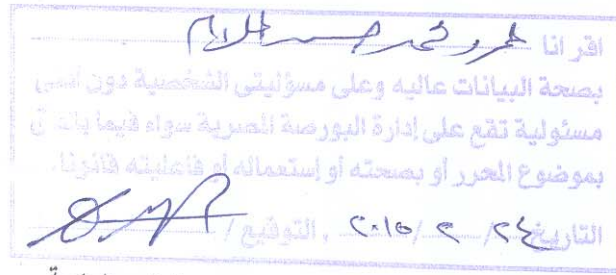 اقر انا عمرو محمد
بصحة البيانات عاليه وعلى مسؤليتى الشخصية دون أدنى
مسئولية تقع على إدارة البورصة المصرية سواء فيما يتعلق
بموضوع المحرر أو بصحته أو إستعماله أو فاعليته قانونا.
التاريخ ٢٤/ ٢ /٢٠١٥ , التوقيع /